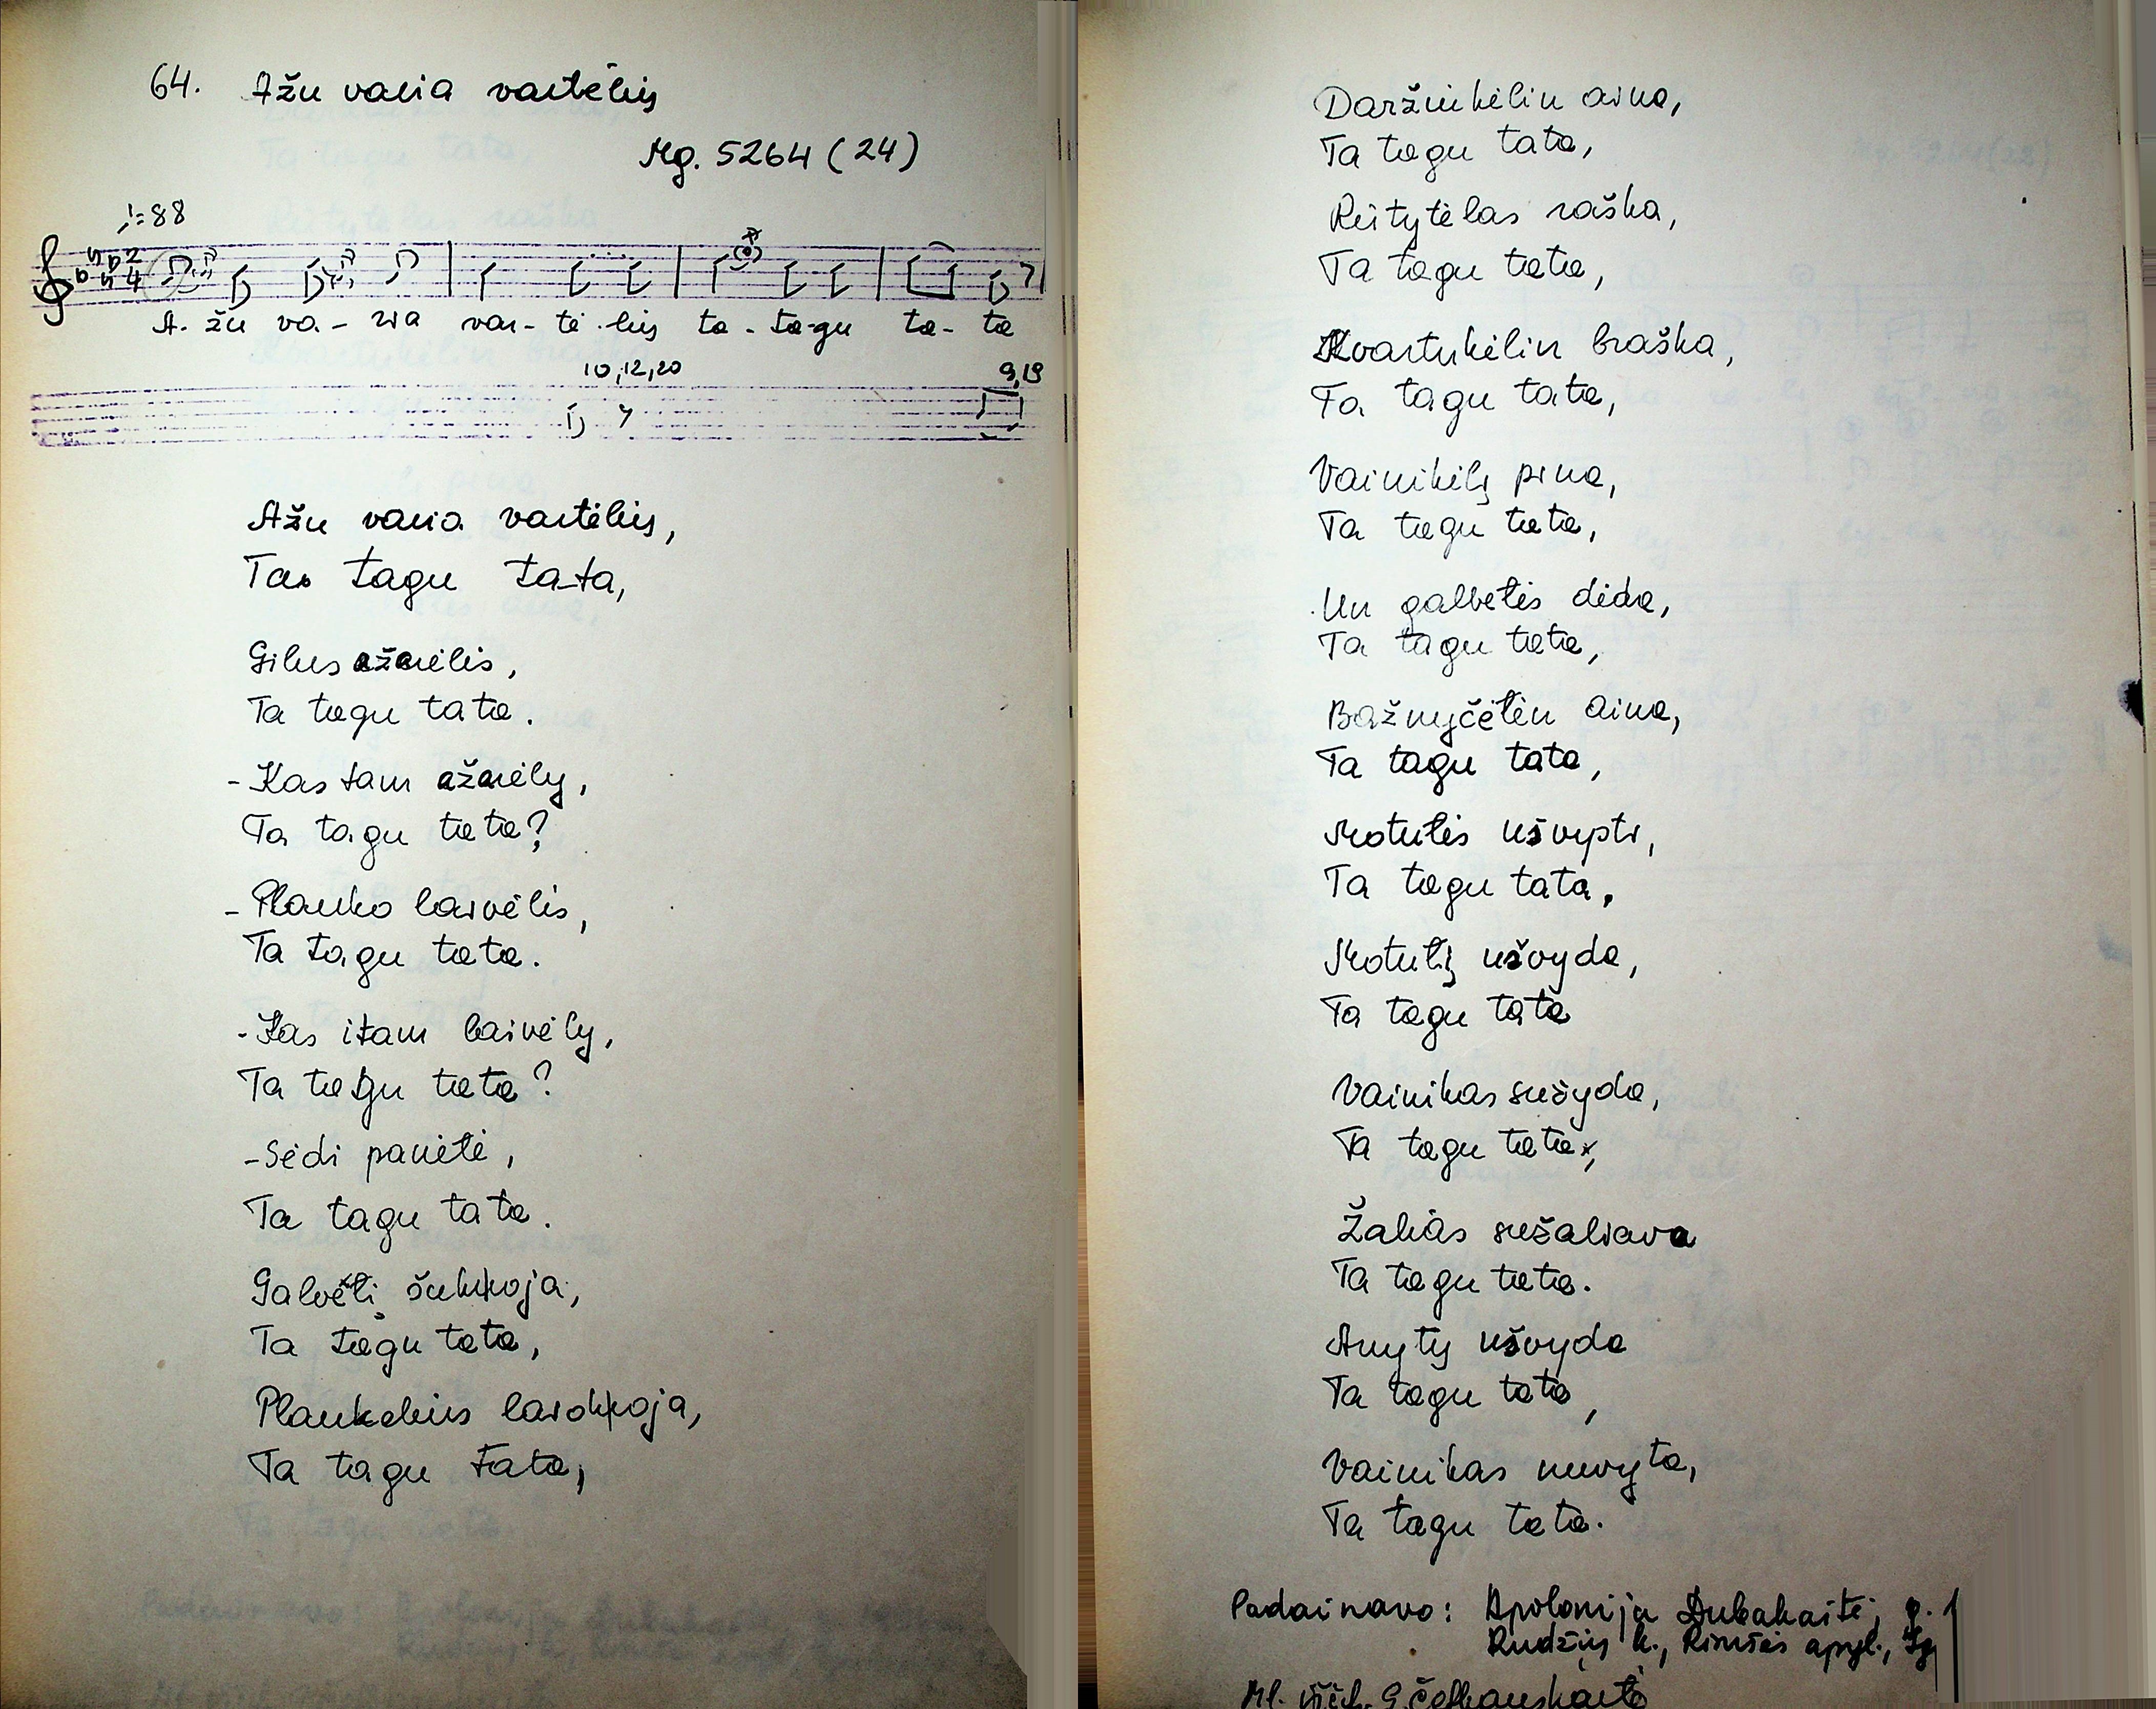 64. Ažu varia vartėlių
Mg. 5264 (24)
♩=88
A- žu va- ria var- tė- lių ta- ta-gu ta- ta
10,12,20 9,19
Ažu varia vartėlių,
Ta tagu ta-ta,
Gilus ažarėlis,
Ta tagu tata.
- Kas tam ažarėly,
Ta tagu tata?
- Plauko laivėlis,
Ta tagu tata.
- Kas itam laivėly,
Ta tagu tata?
- Sėdi panėtė,
Ta tagu tata.
Galvėtį šukuoja,
Ta tagu tata,
Ta tagu tata,
Daržinkėlin aina,
Ta tagu tata,
Rūtytėlas raška,
Ta tagu tata,
Kvartukėlin braška,
Ta tagu tata,
Vainikėlį pina,
Ta tagu tata,
Un galvetės dėda,
Ta tagu tata,
Bažnyčėtėn aina,
Ta tagu tata,
Motutės ušvypti,
Ta tagu tata.
Motutį ušvyda,
Ta tagu tata
Vainikas sužyda,
Ta tagu tata,
Žalias sužaliava
Ta tagu tata.
Anytų ušvyda
Ta tagu tata,
Vainikas nuvyta,
Ta tagu tata.
Padainavo: Apolonija Dubakaitė, g. 1
k., Rimšės apyl., Ig
G. Četkauskaitė